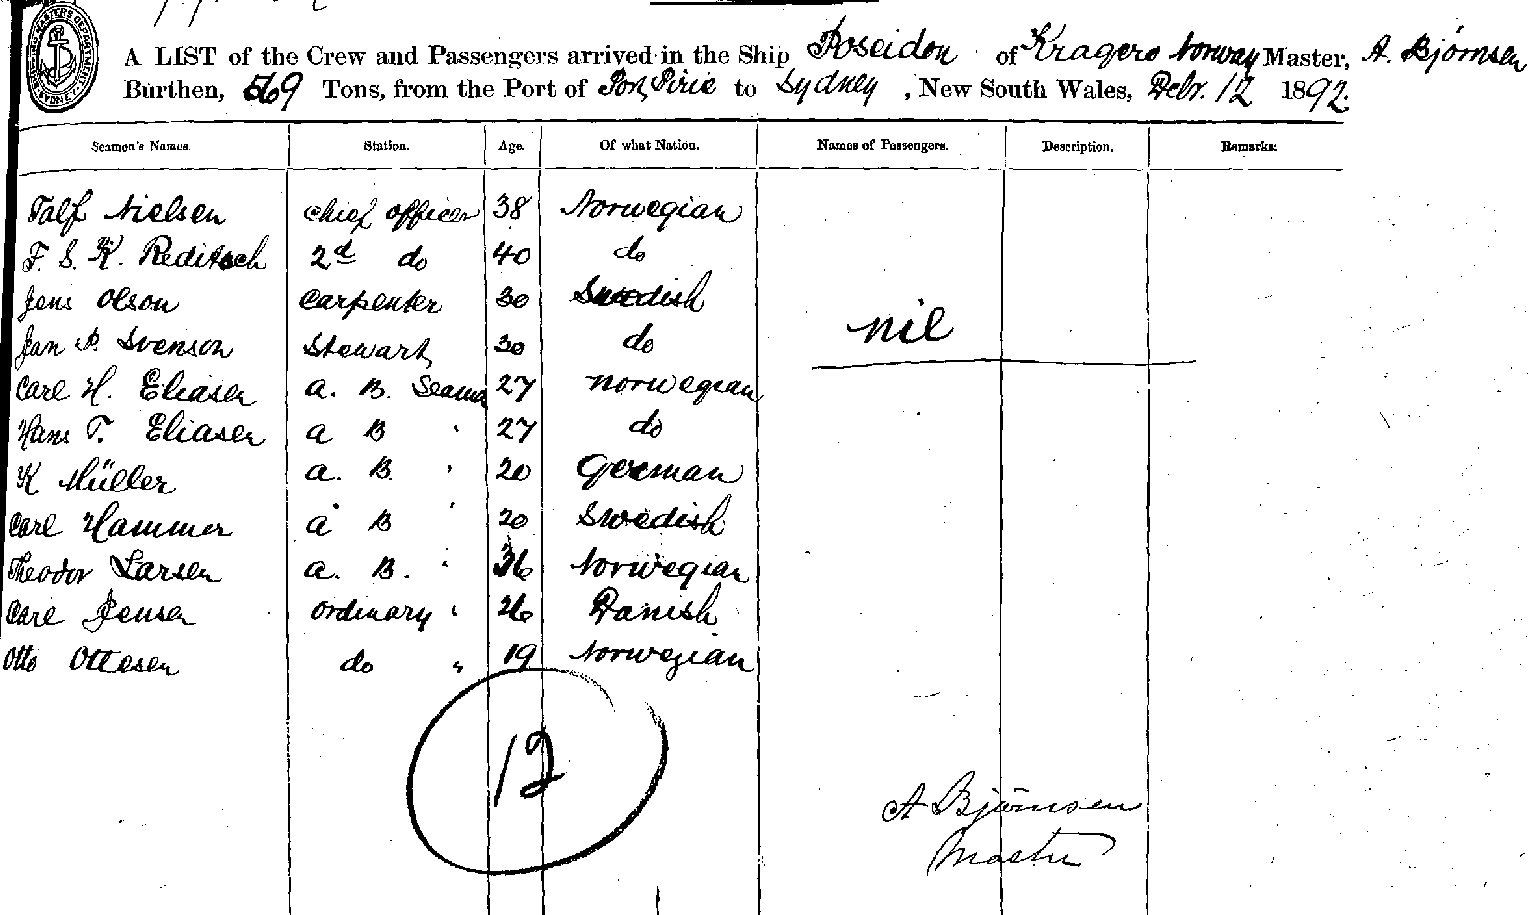 A LIST of the Crew and Passengers arrived in the Ship Poseidon of Kragerö Norway Master, A. Bjørnsen
Burthen, 569 Tons, from the Port of Port Pirie to Sydney, New South Wales, Debr. 12 1892.
Seamen's Names. Station. Age. Of what Nation. Names of Passengers. Description. Remarks.
Talf Nielsen chief officer 38 Norwegian
F. S. K. Reditsch 2d do 40 do
Jens Olson Carpenter 30 Swedish
Jan P. Svenson Stewart 30 do
nil
Carl H. Eliasen a. B. Seaman 27 norwegian
Hans T. Eliasen a B " 27 do
K Müller a. B. " 20 German
Carl Hammer a B " 20 Swedish
Theodor Larsen a. B. " 36 Norwegian
Carl Jensen Ordinary " 26 Danish
Otto Ottesen do " 19 Norwegian
12
A Bjørnsen
Master